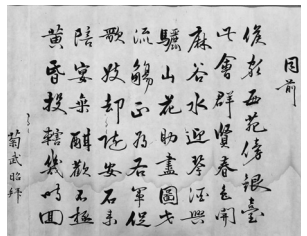 同前
侯家西苑傍銀臺
此會群賢春色開
麻谷水迎琴酒興
驪山花助畫圖才
流觴正為右軍促
歌妓却随安石来
陪宴乗酣歡不極
黄昏投轄幾時回
菊武昭拜